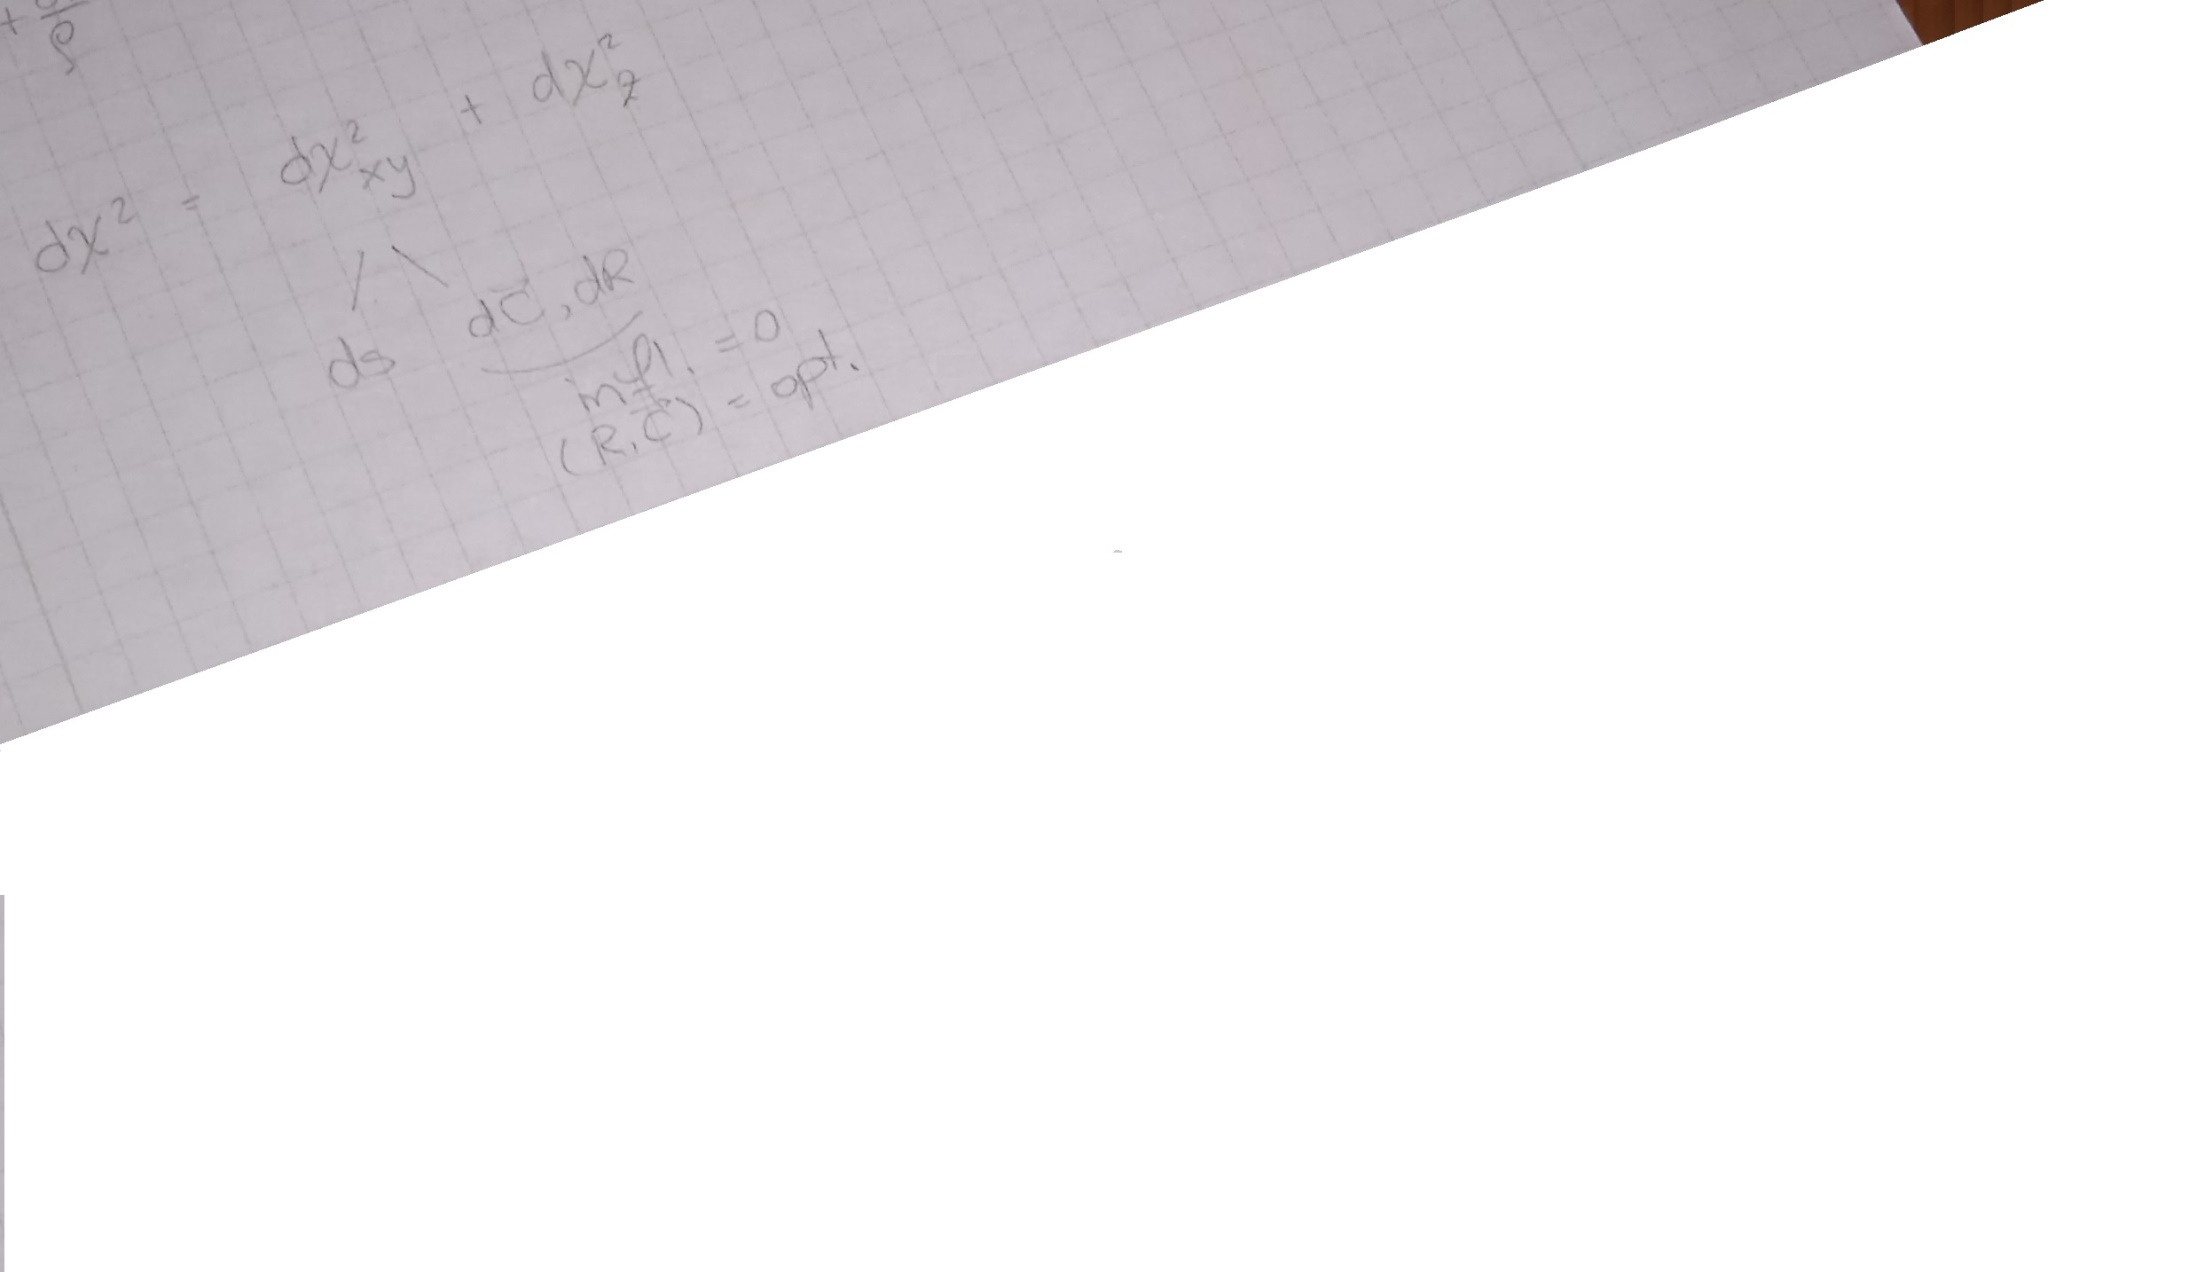 + ρ
dχ² = dχ²xy + dχ²z
/ \
ds dC̄, dR
infl. = 0
(R, C̄) = opt.